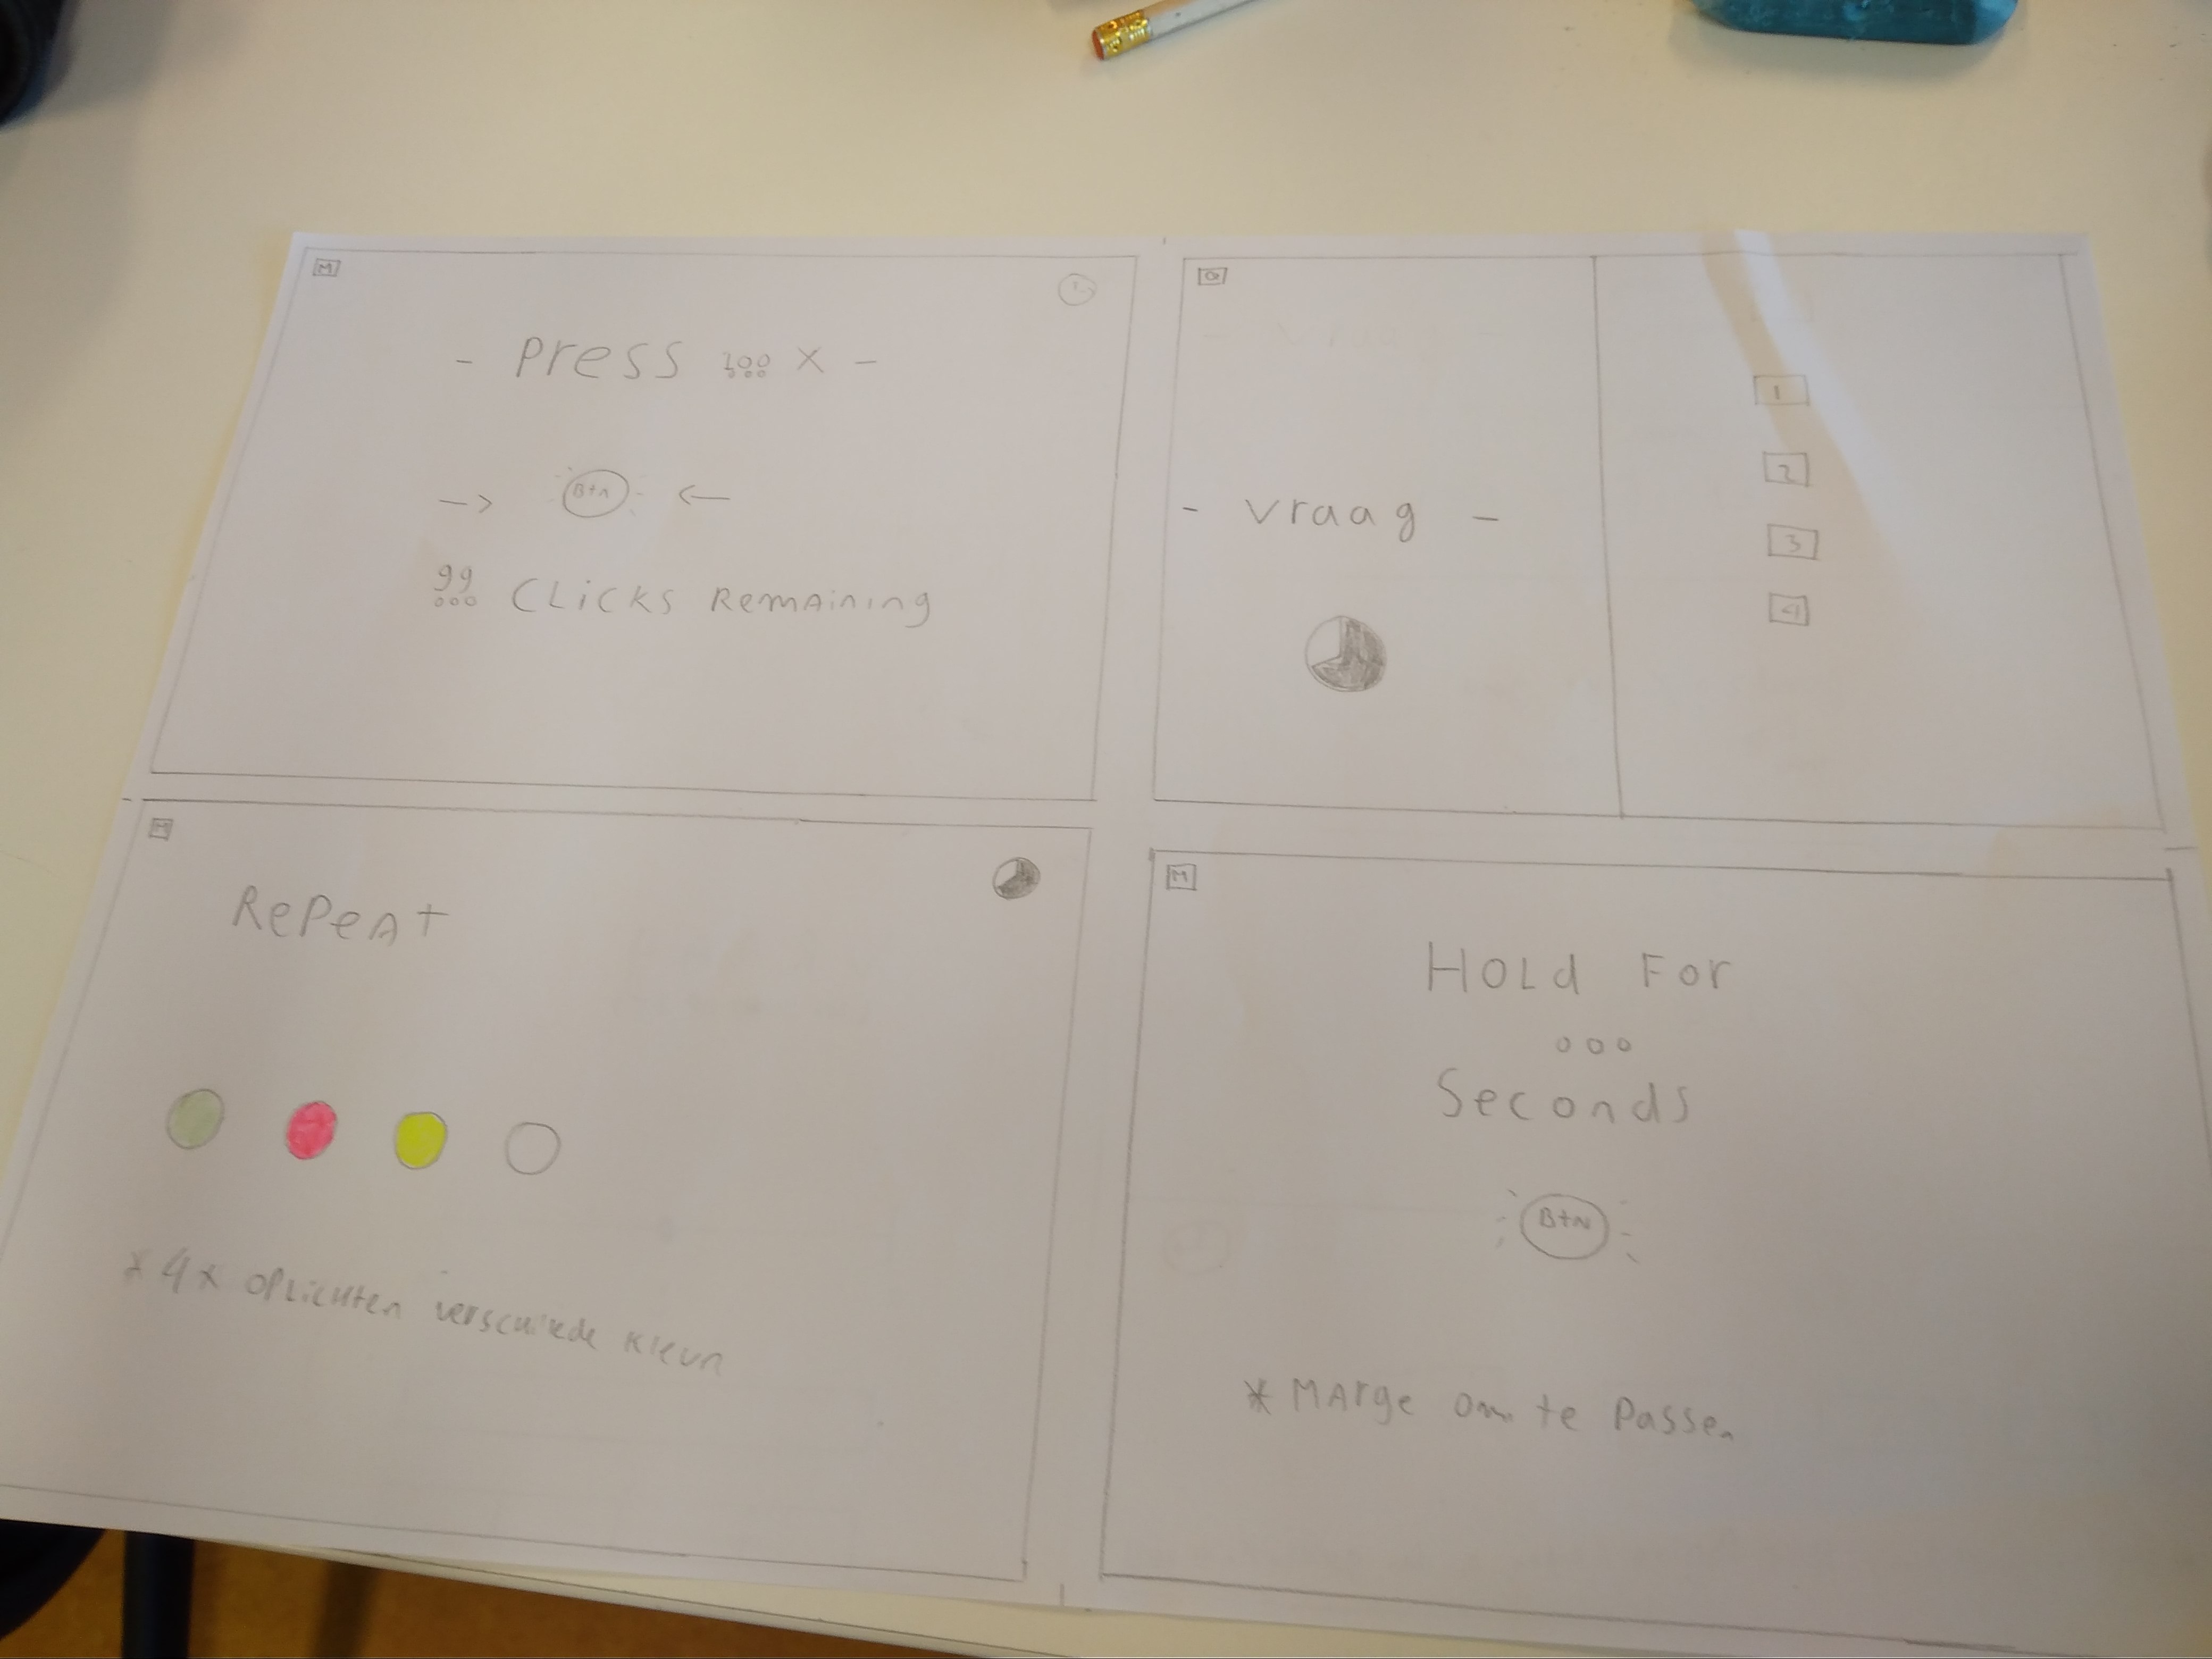 M
- Press 100 X -
Btn
99 Clicks Remaining
- vraag -
1
2
3
4
M
Repeat
* 4x oplichten verschilede kleur
M
Hold For
Seconds
Btn
* Marge om te Passen